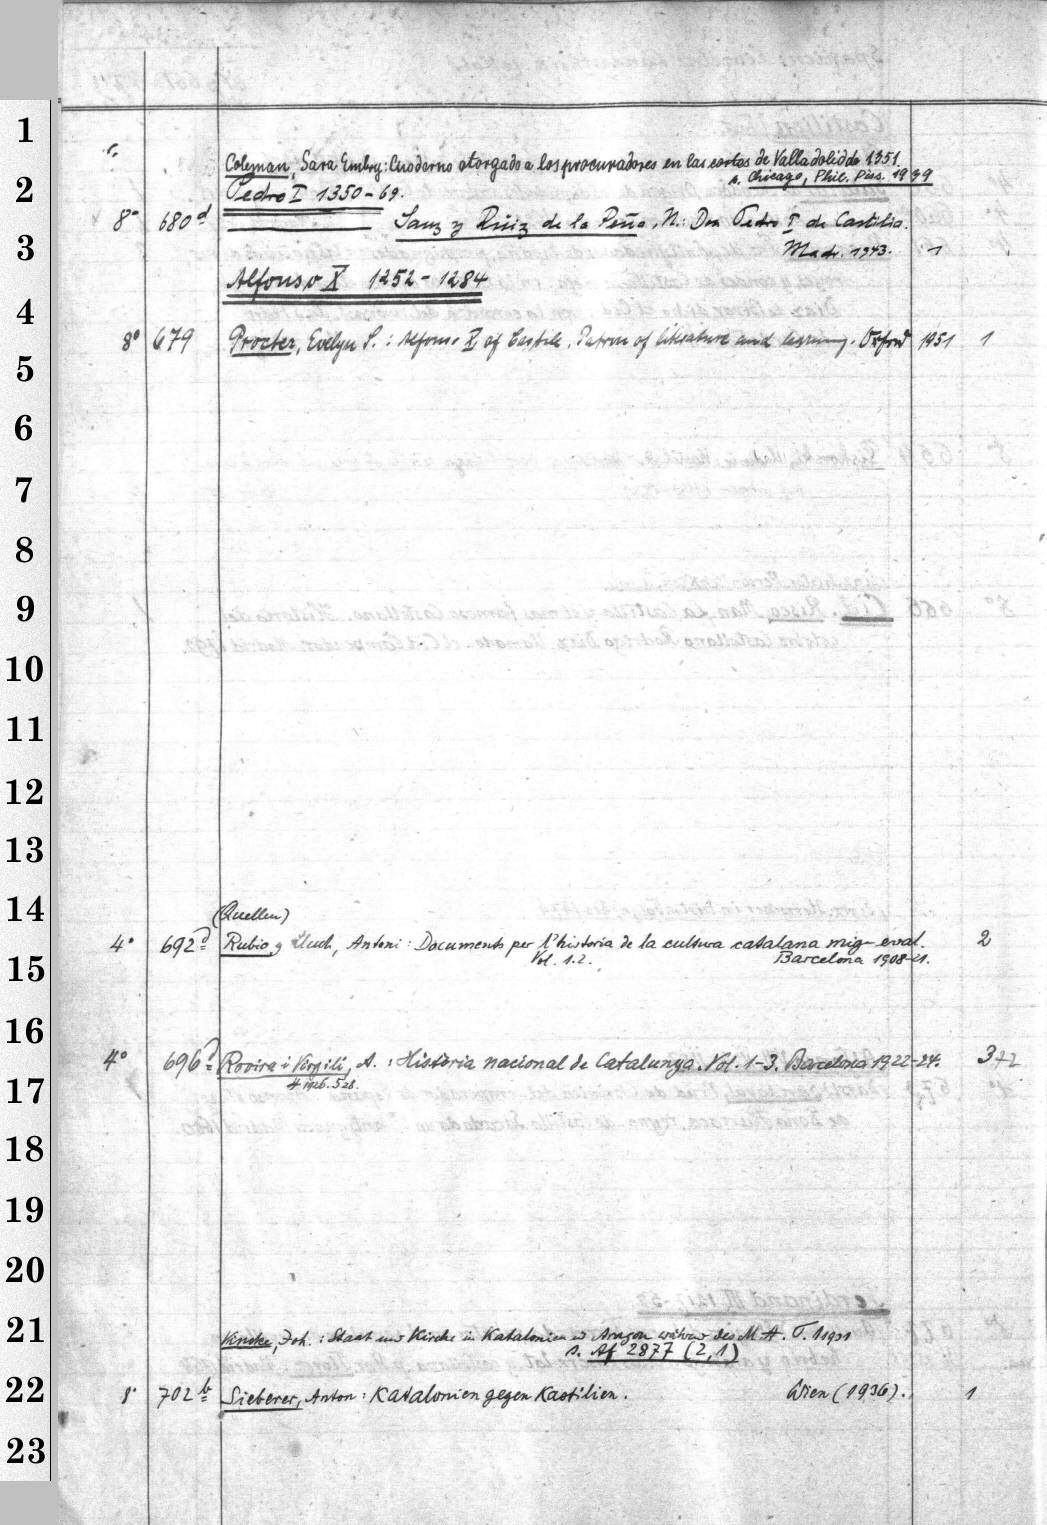 1
2
3
4
5
6
7
8
9
10
11
12
13
14
15
16
17
18
19
20
21
22
23
Coleman, Sara Embry: Cuaderno otorgado a los procuradores en las cortes de Valladolid de 1351
s. Chicago, Phil. Diss. 1939
Pedro I 1350-69.
8° 680d Sanz y Ruiz de la Peña, N.: Don Pedro I de Castilia.
Madr. 1943. 1
Alfonso X 1252-1284
8° 679 Procter, Evelyn S.: Alfonso X of Castile, Patron of literature and learning. Oxford 1951 1
(Quellen)
4° 692 Rubio y Lluch, Antoni: Documents per l'historia de la cultura catalana mig-eval. 2
Vol. 1.2. Barcelona 1908-21.
4° 696 Rovira i Virgili, A.: Història nacional de Catalunya. Vol. 1-3. Barcelona 1922-24. 3+2
4 1926. 528.
Vincke, Joh.: Staat und Kirche in Katalonien u Aragon während des M A. T. 1 1931
s. Af 2877 (2,1)
8° 702b Sieberer, Anton: Katalonien gegen Kastilien. Wien (1936). 1